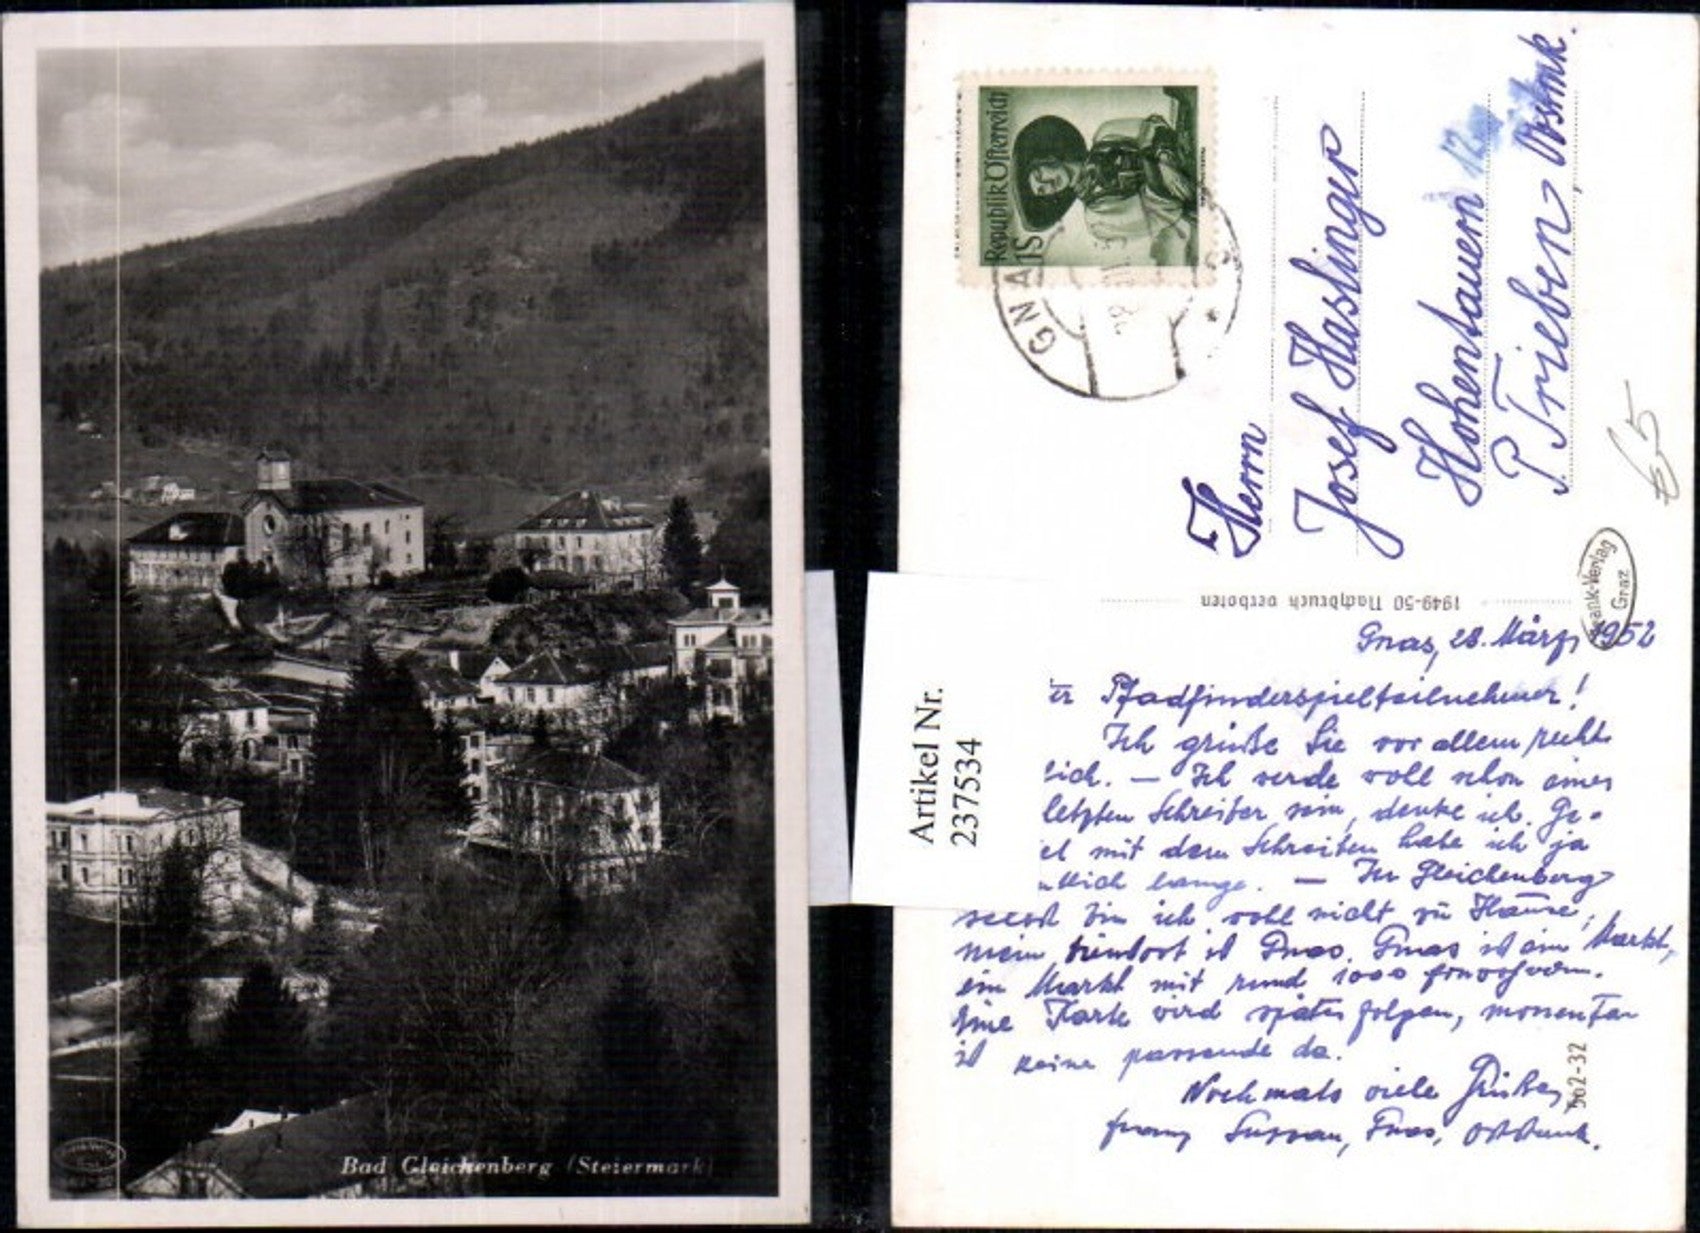 Bad Gleichenberg (Steiermark)
Republik Österreich
GNAS
Herrn
Josef Haslinger
Hohentauern 12
P. Trieben, Obstmk.
65
1949-50 Nachdruck verboten
Frank-Verlag
Graz
Artikel Nr.
2375534
Gnas, 28. März 1952
er Pfadfinderspielteilnehmer!
Ich grüße Sie vor allem recht
lich. — Ich werde wohl schon eines
letzten Schreiber sein, denke ich. Ge-
el mit dem Schreiben habe ich ja
lange. — In Gleichenberg
selbst bin ich wohl nicht zu Hause,
mein ist Gnas. Gnas ist ein Markt,
ein Markt mit rund 1000 Einwohnern.
Eine Karte wird später folgen, momentan
ist keine passende da.
Nochmals viele Grüße,
Franz Gnas, Oststmk.
502-32